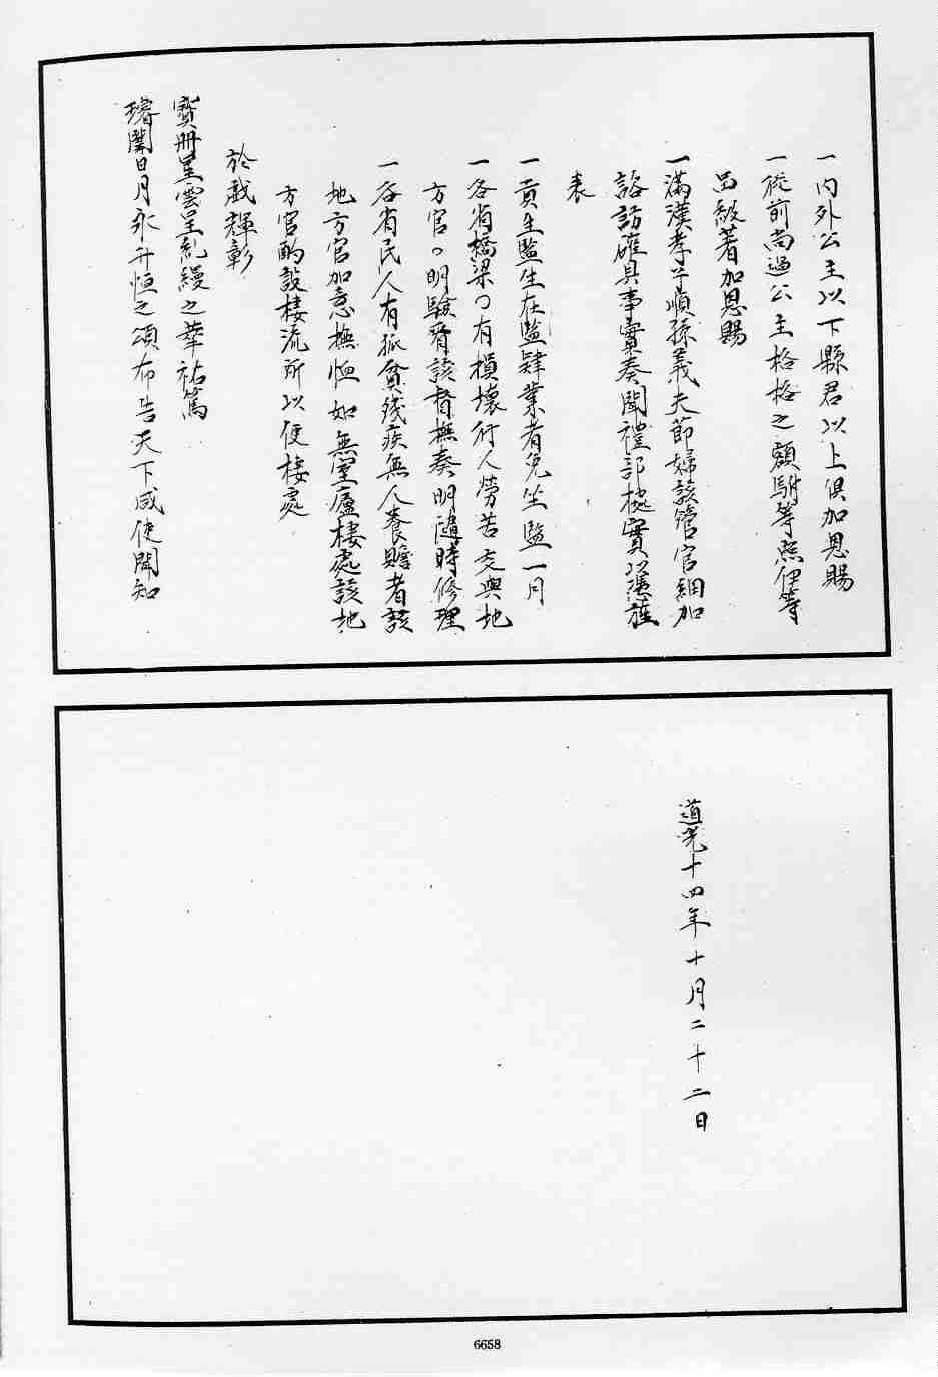 一內外公主以下縣君以上俱加恩賜
一從前尚過公主格格之額駙等照伊等
品級著加恩賜
一滿漢孝子順孫義夫節婦該管官細加
諮訪確具事實奏聞禮部核實以憑旌
表
一貢生監生在監肄業者免坐監一月
一各省橋梁有損壞行人勞苦交與地
方官明驗胥該督撫奏明隨時修理
一各省民人有孤貧殘疾無人養贍者該
地方官加意撫恤如無室廬棲處該地
方官酌設棲流所以便棲處
於戲輝彰
寶冊呈雲呈糺縵之華祐篤
璿闈日月永升恒之頌布告天下咸使聞知
道光十四年十月二十二日
6658